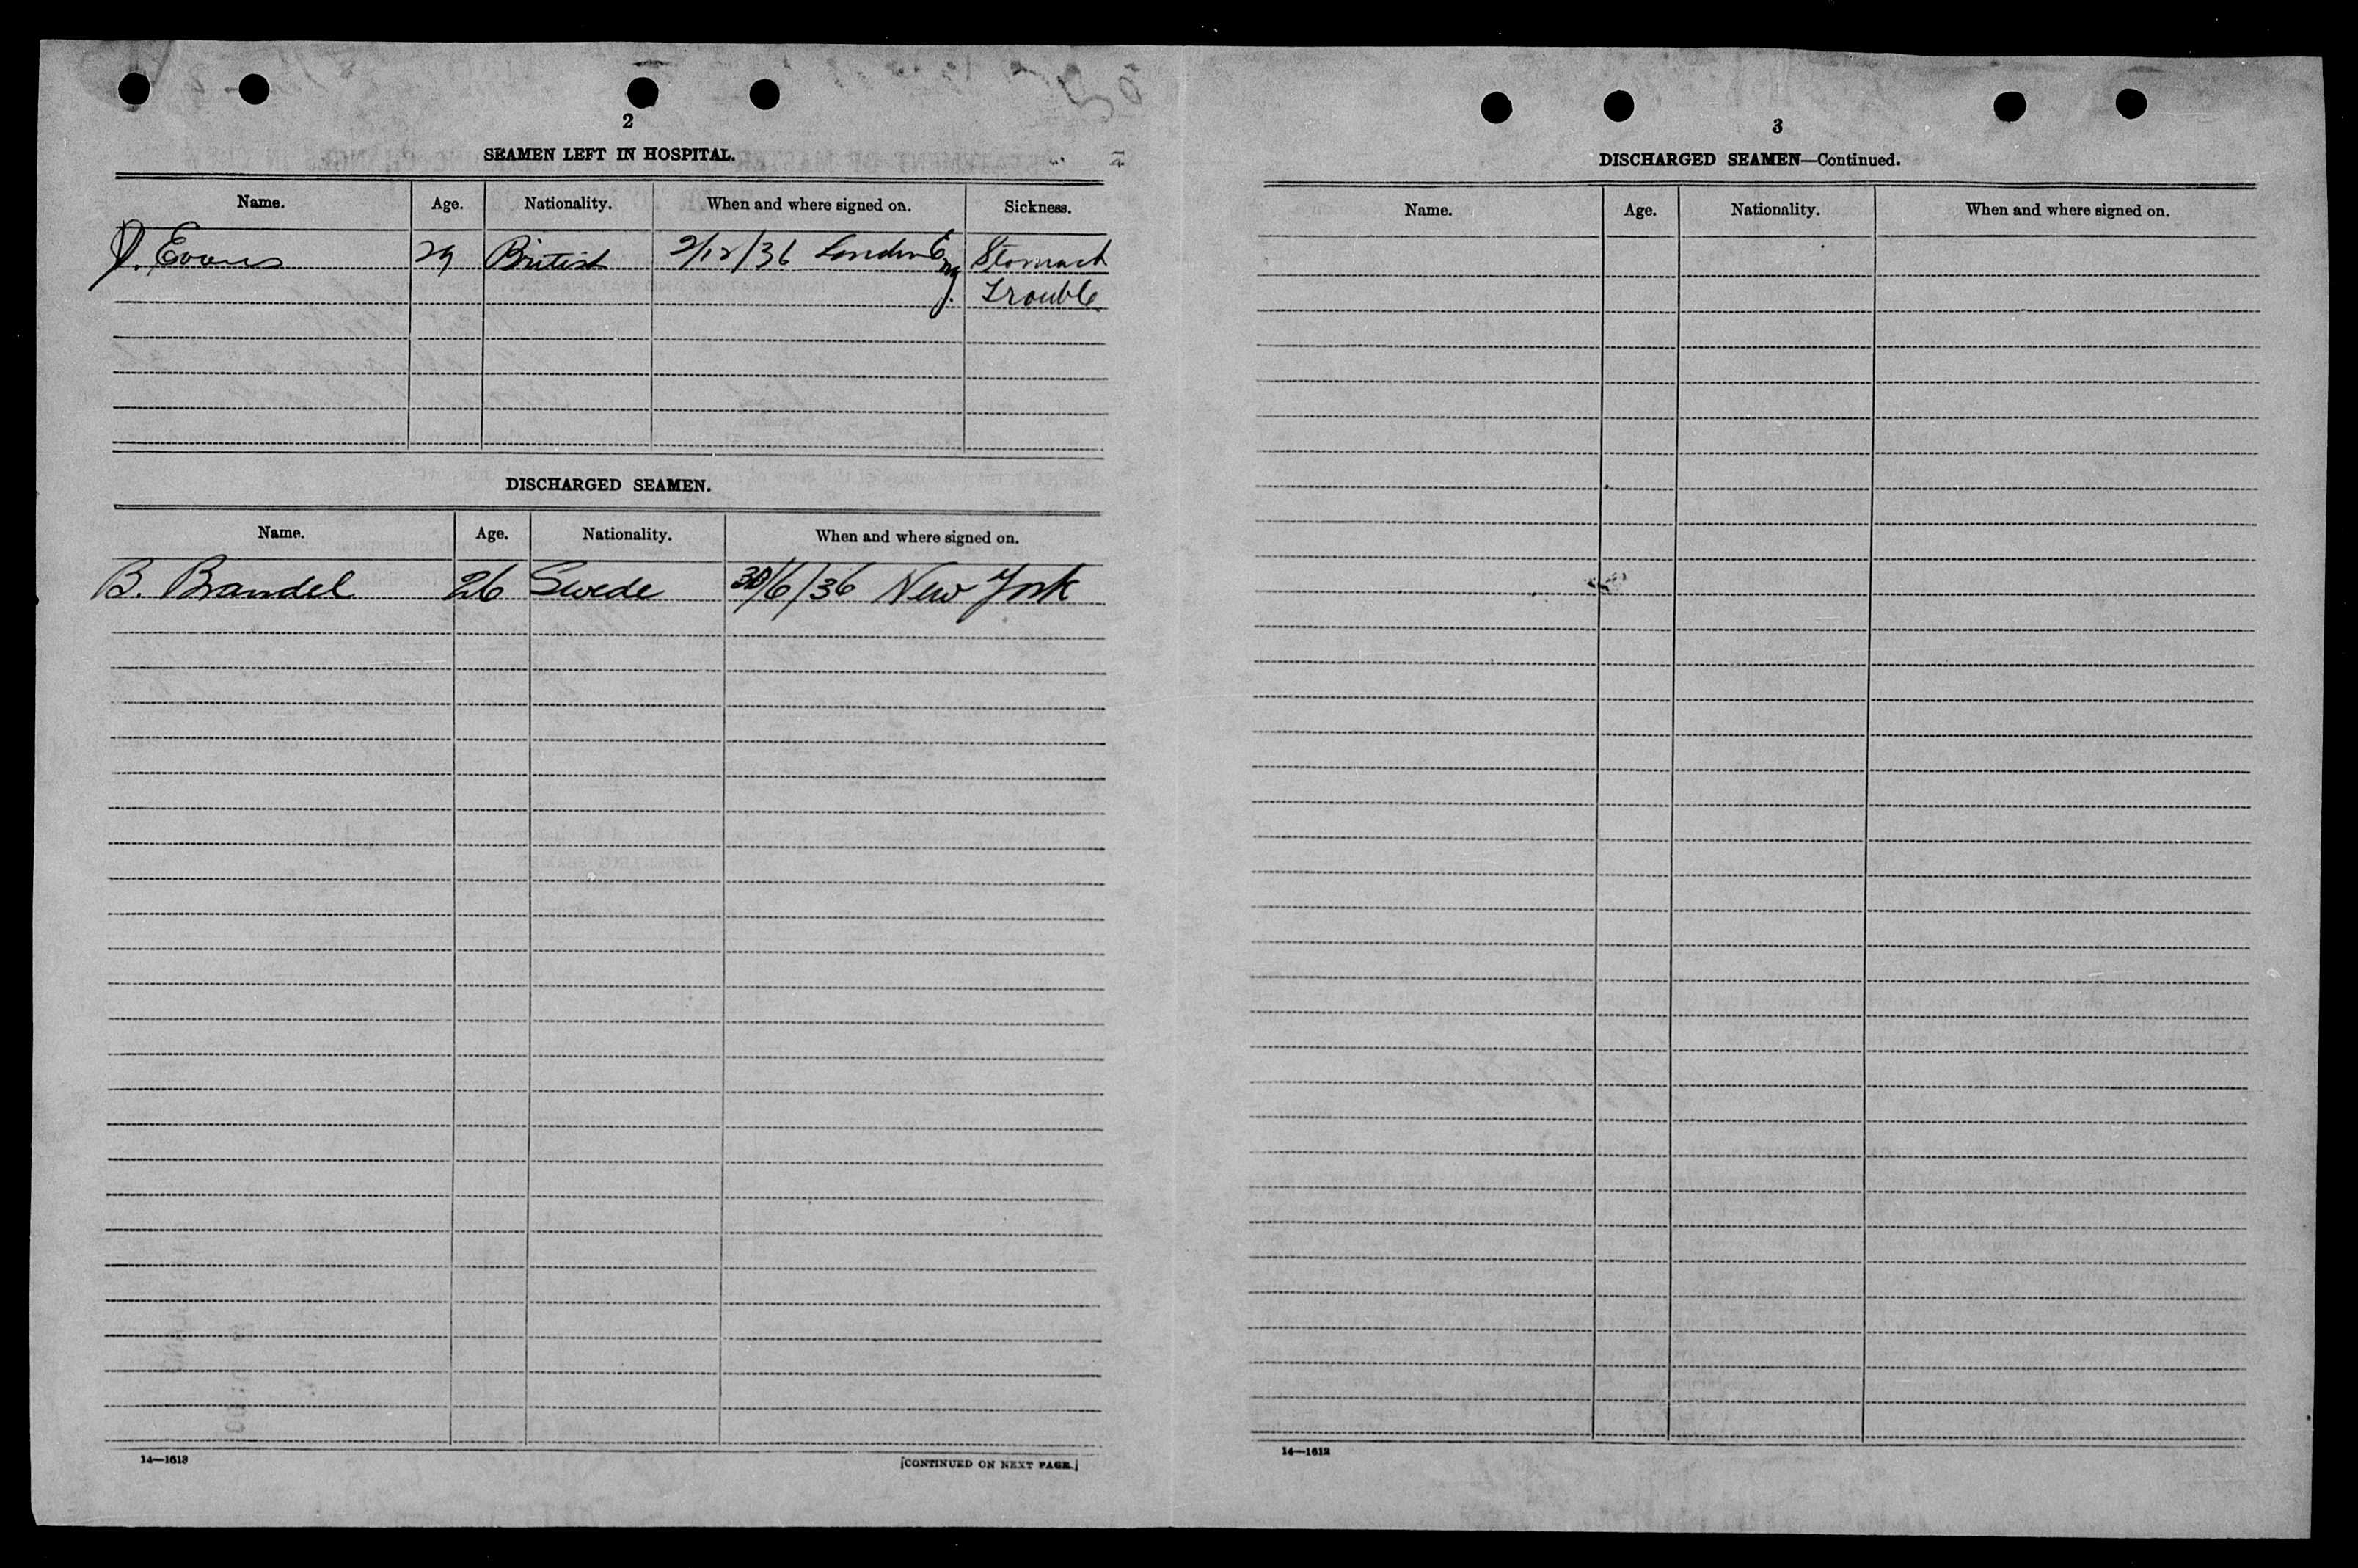 2
SEAMEN LEFT IN HOSPITAL.
Name. Age. Nationality. When and where signed on. Sickness.
Evans 29 British 2/12/36 London Eng. Stomach
Trouble
DISCHARGED SEAMEN.
Name. Age. Nationality. When and where signed on.
B. Brandel 26 Swede 30/6/36 New York
14—1613
[CONTINUED ON NEXT PAGE.]
3
DISCHARGED SEAMEN—Continued.
Name. Age. Nationality. When and where signed on.
14—1613